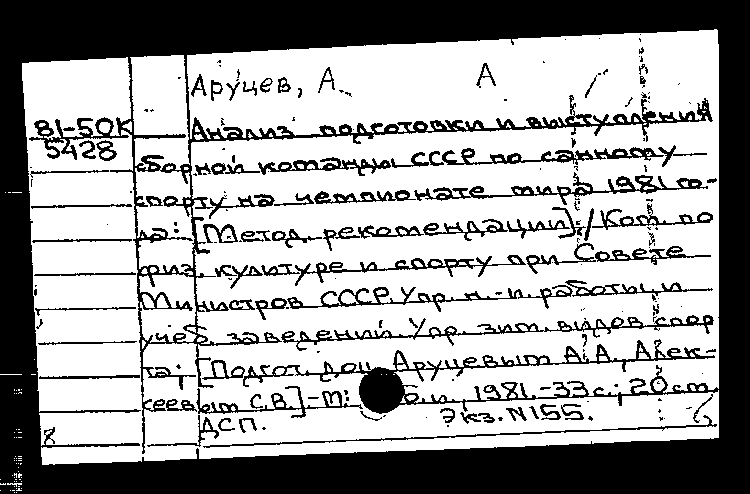 Аруцев, А. А
81-50К Анализ подготовки и выступления
5428 сборной команды СССР по санному
спорту на чемпионате мира 1981 го-
да: [Метод. рекомендации] / Ком. по
физ. культуре и спорту при Совете
Министров СССР. Упр. н.-и. работы и
учеб. заведений. Упр. зим. видов спор
та; [Подгот. доц. Аруцевым А.А., Алек-
сеевым С.В.] - М: Б.и., 1981.-33 с.; 20 см.
ДСП. Экз. N155.
8 б